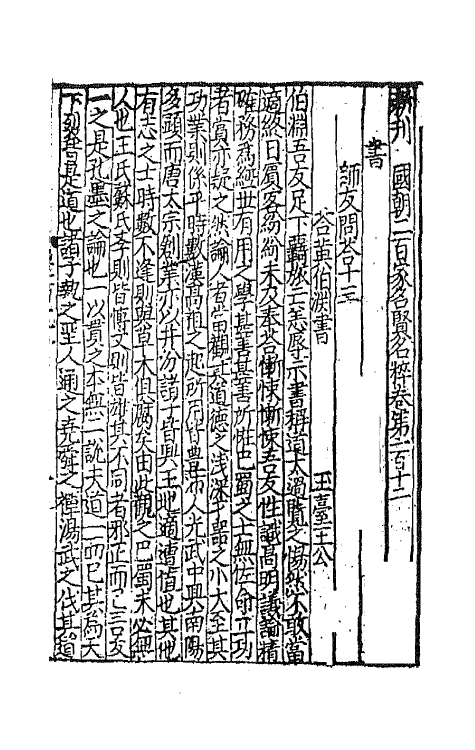 新刊國朝二百家名賢文粹卷第一百十二
書
師友問答十三
答黃伯淵書
玉臺王公
伯淵吾友足下專族士惠辱示書稱道太過覽之惕然不敢當
適終日賓客紛紛未及奉答慚悚慚悚吾友性識高明議論精
確務爲經世有用之學甚善甚善所性巴蜀之士無佐命立功
者嘗亦疑之然論人者當觀其道德之淺深才器之小大至其
功業則係乎時數漢高祖之起所用皆豐沛人光武中興南陽
多顯而唐太宗創業亦以并汾諸士皆興王地適遭值也其他
有志之士時數不逢則與草木俱腐矣由此觀之巴蜀未必無
人也王氏蘇氏李則皆博文則皆雄其不同者邪正而已吾友
一之是孔墨之論也一以貫之本無二說夫道一而已其爲天
下裂者是道也諸子執之聖人通之堯舜之禪湯武之伐其道